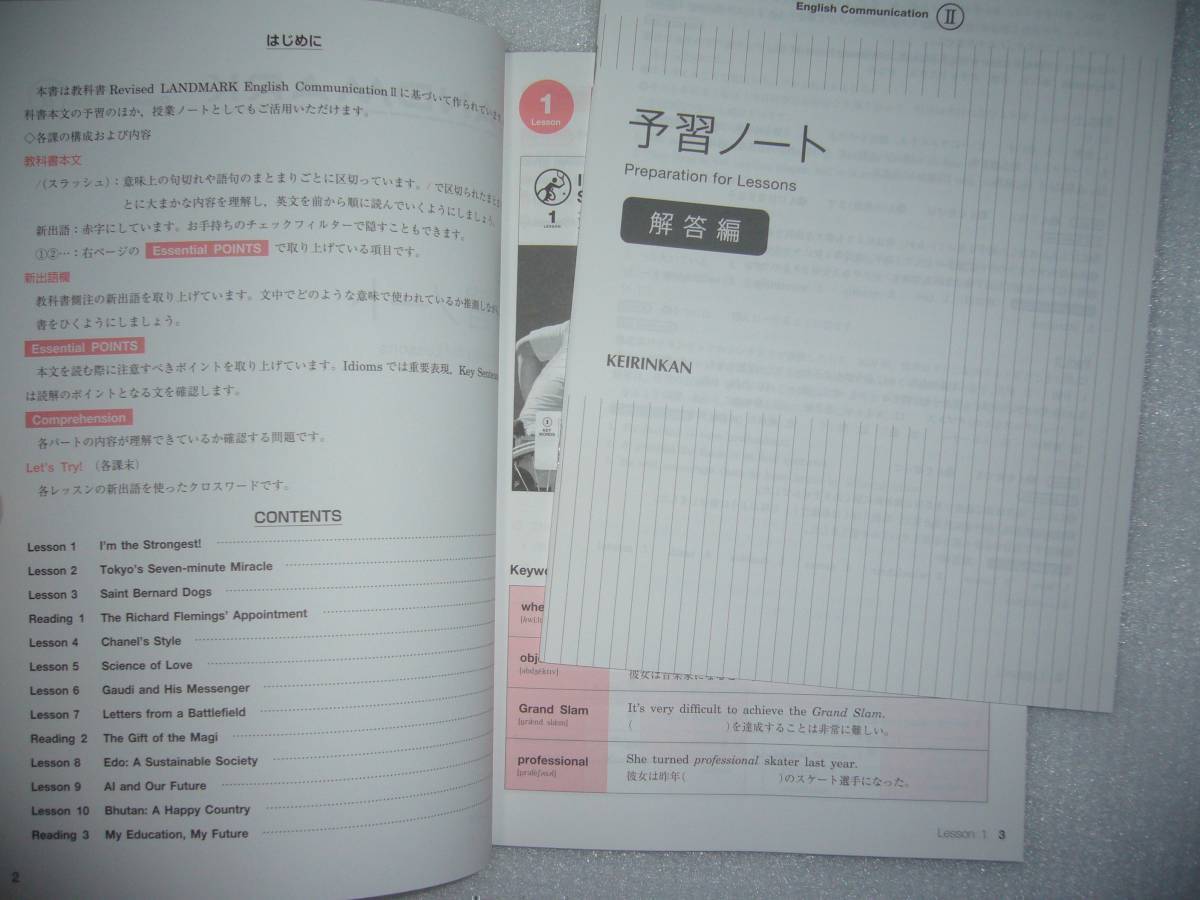 はじめに
本書は教科書 Revised LANDMARK English Communication Ⅱ に基づいて作られています。
科書本文の予習のほか，授業ノートとしてもご活用いただけます。
◇各課の構成および内容
教科書本文
/（スラッシュ）：意味上の句切れや語句のまとまりごとに区切っています。/ で区切られたまとま
とに大まかな内容を理解し，英文を前から順に読んでいくようにしましょう。
新出語：赤字にしています。お手持ちのチェックフィルターで隠すこともできます。
①②…：右ページの Essential POINTS で取り上げている項目です。
新出語欄
教科書側注の新出語を取り上げています。文中でどのような意味で使われているか推測しながら，
書をひくようにしましょう。
Essential POINTS
本文を読む際に注意すべきポイントを取り上げています。Idioms では重要表現，Key Sentence
は読解のポイントとなる文を確認します。
Comprehension
各パートの内容が理解できているか確認する問題です。
Let's Try!（各課末）
各レッスンの新出語を使ったクロスワードです。
CONTENTS
Lesson 1 I'm the Strongest!
Lesson 2 Tokyo's Seven-minute Miracle
Lesson 3 Saint Bernard Dogs
Reading 1 The Richard Flemings' Appointment
Lesson 4 Chanel's Style
Lesson 5 Science of Love
Lesson 6 Gaudi and His Messenger
Lesson 7 Letters from a Battlefield
Reading 2 The Gift of the Magi
Lesson 8 Edo: A Sustainable Society
Lesson 9 AI and Our Future
Lesson 10 Bhutan: A Happy Country
Reading 3 My Education, My Future
2
1
Lesson
1
LESSON
KEY
WORDS
Keywo
whe
obj
彼女は音楽家になるこ
Grand Slam
[grǽnd slǽm]
It's very difficult to achieve the Grand Slam.
（　　　　）を達成することは非常に難しい。
professional
[prəféʃənl]
She turned professional skater last year.
彼女は昨年（　　　　）のスケート選手になった。
Lesson 1 3
English Communication Ⅱ
予習ノート
Preparation for Lessons
解答編
KEIRINKAN